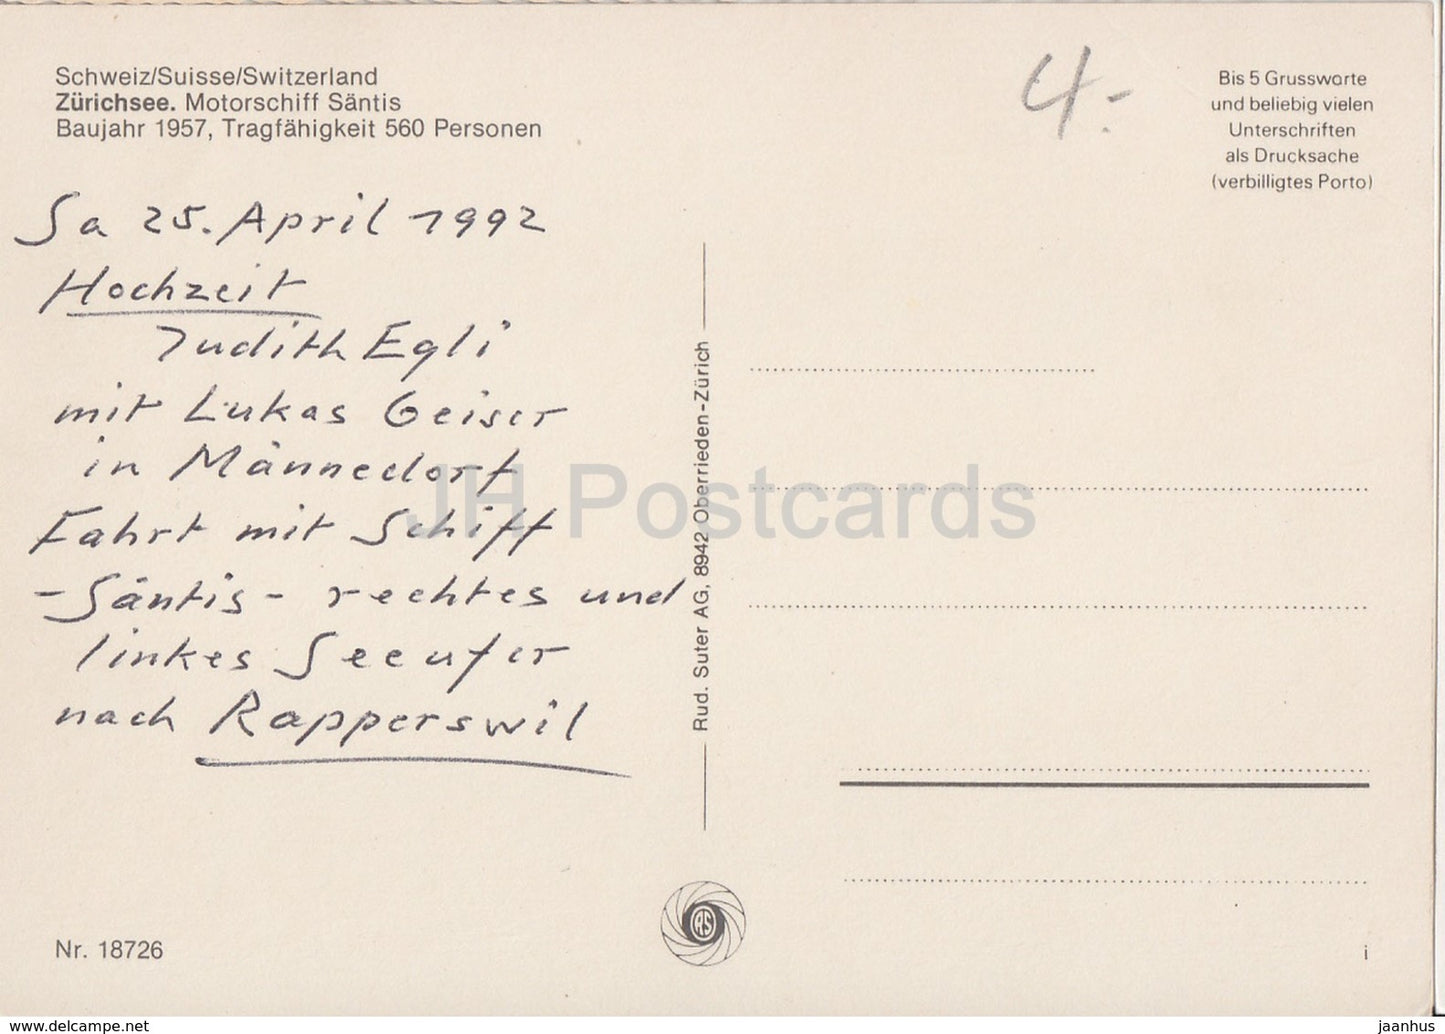 Schweiz/Suisse/Switzerland
Zürichsee. Motorschiff Säntis
Baujahr 1957, Tragfähigkeit 560 Personen
4.-
Bis 5 Grussworte
und beliebig vielen
Unterschriften
als Drucksache
(verbilligtes Porto)
Sa 25. April 1992
Hochzeit
Judith Egli
mit Lukas Geiser
in Männedorf
Fahrt mit Schiff
-Säntis- rechtes und
linkes Seeufer
nach Rapperswil
Rud. Suter AG, 8942 Oberrieden-Zürich
JH Postcards
RS
Nr. 18726
i
www.delcampe.net
jaanhus